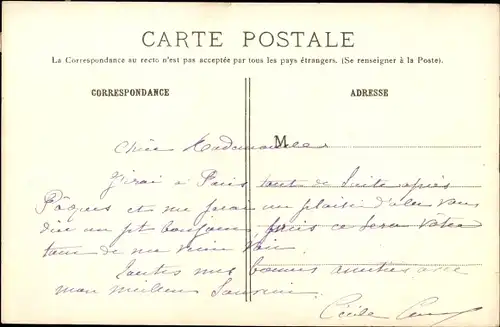 CARTE POSTALE
La Correspondance au recto n'est pas acceptée par tous les pays étrangers. (Se renseigner à la Poste).
CORRESPONDANCE
ADRESSE
M
Chère Mademoiselle
J'irai à Paris tout de suite après
Pâques et me ferai un plaisir d'aller vous
dire un pt bonjour, puis ce sera votre
tour de me venir voir.
Toutes mes bonnes amitiés avec
mon meilleur souvenir
Cécile